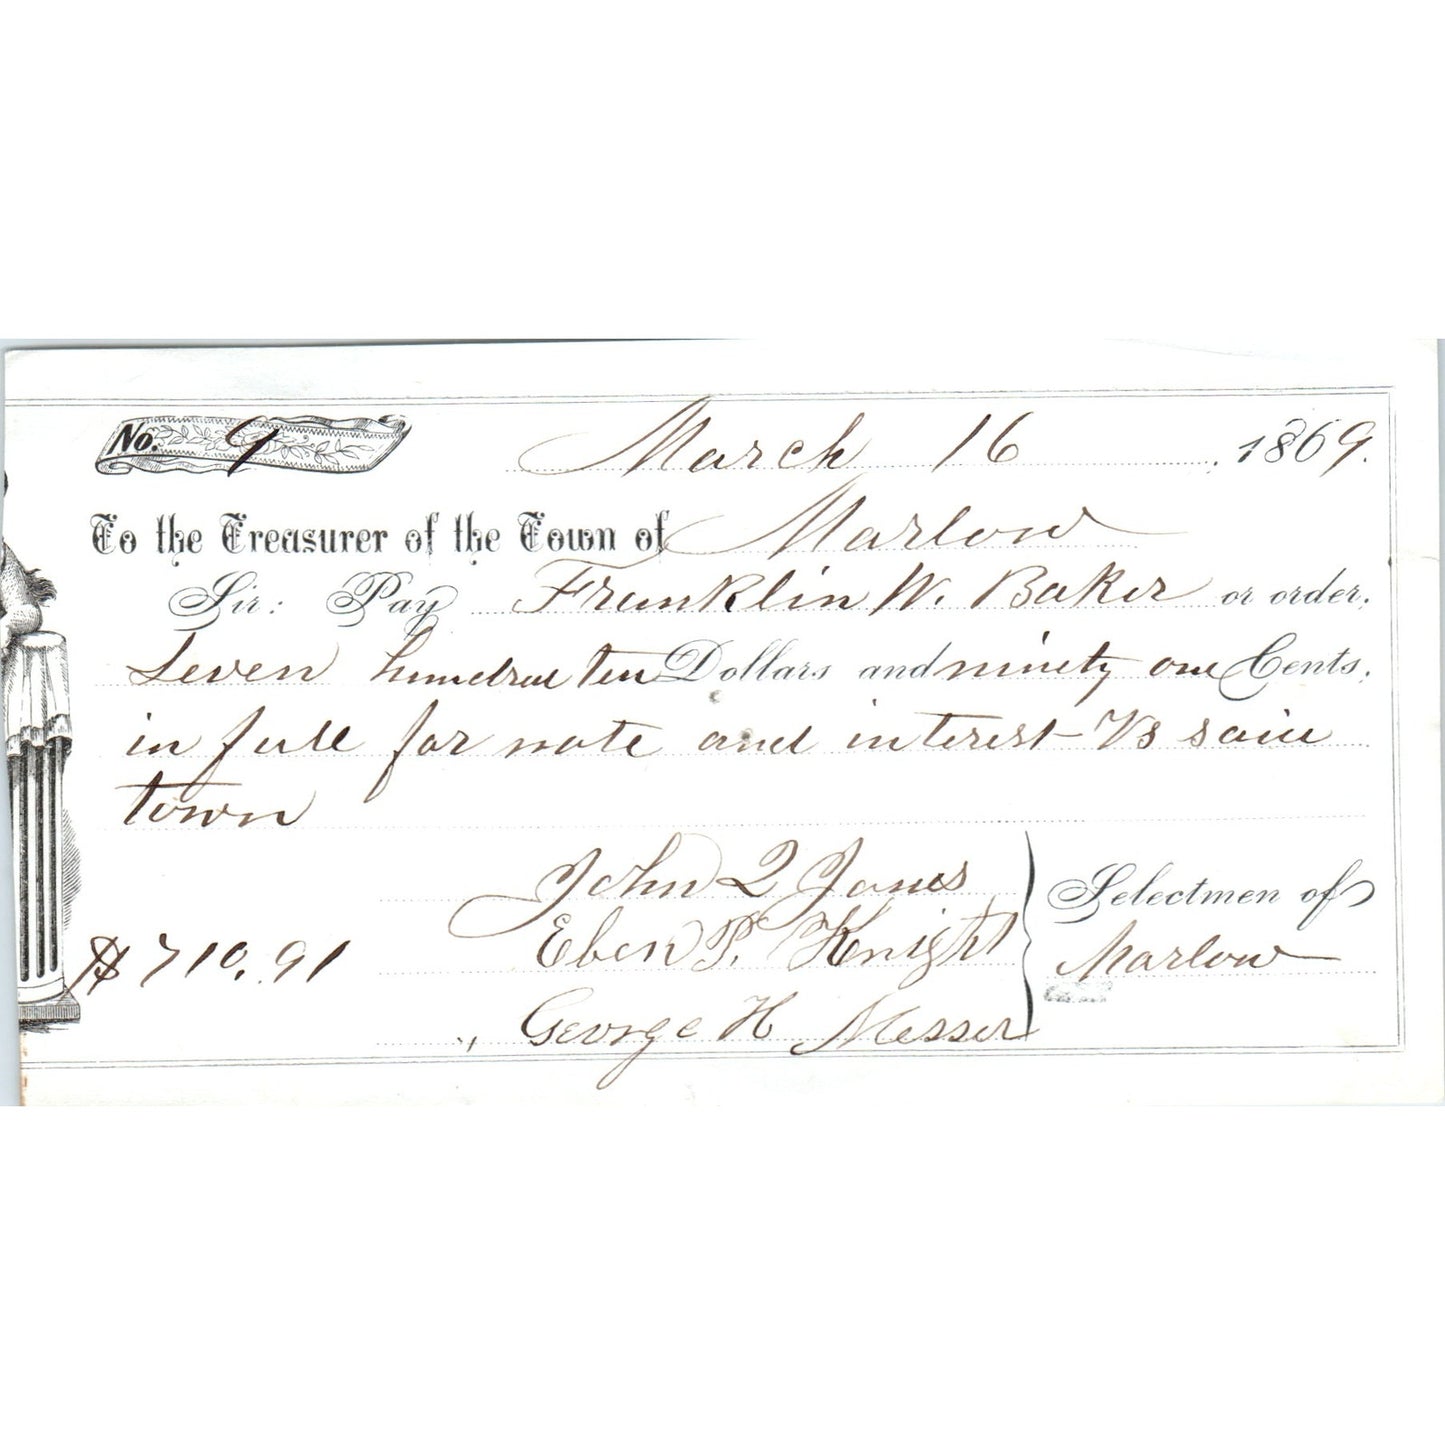 No. 9 March 16 1869.
To the Treasurer of the Town of Marlow
Sir: Pay Franklin W. Baker or order,
Seven hundred ten Dollars and ninety one Cents,
in full for note and interest Vs said
town
John Q Jones
Eben P. Knight
George H Messer
Selectmen of
Marlow
$710.91